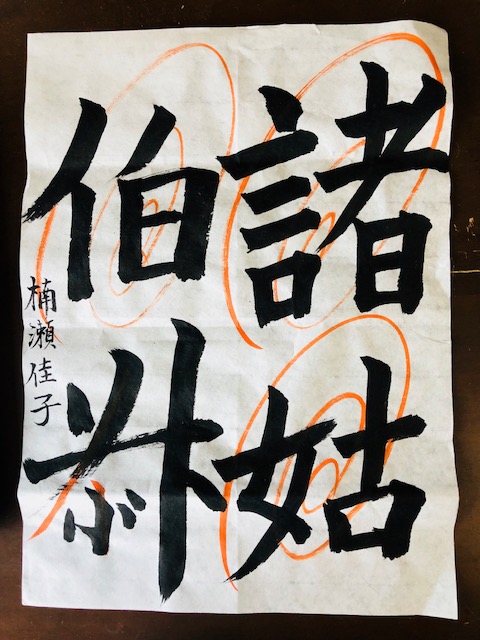 諸姑
伯叔
楠瀬佳子